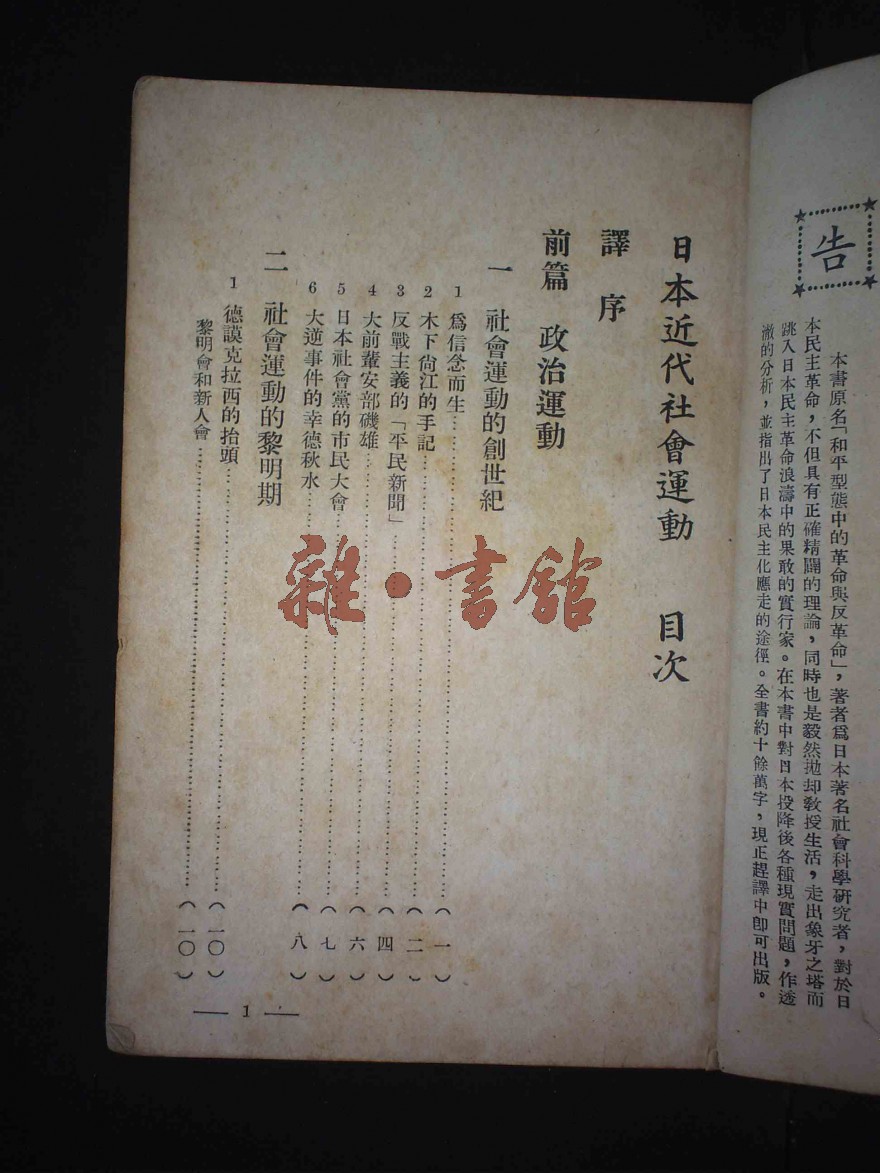 告
本書原名「和平型態中的革命與反革命」，著者爲日本著名社會科學研究者，對於日
本民主革命，不但具有正確精闢的理論，同時也是毅然拋却敎授生活，走出象牙之塔而
跳入日本民主革命浪濤中的果敢的實行家。在本書中對日本投降後各種現實問題，作透
澈的分析，並指出了日本民主化應走的途徑。全書約十餘萬字，現正趕譯中卽可出版。
日本近代社會運動　目次
譯序
前篇　政治運動
一　社會運動的創世紀
1　爲信念而生……（一）
2　木下尙江的手記……（二）
3　反戰主義的「平民新聞」……（四）
4　大前輩安部磯雄……（六）
5　日本社會黨的市民大會……（七）
6　大逆事件的幸德秋水……（八）
二　社會運動的黎明期
1　德謨克拉西的抬頭……（一〇）
黎明會和新人會……（一〇）
— 1 —
雜·書館